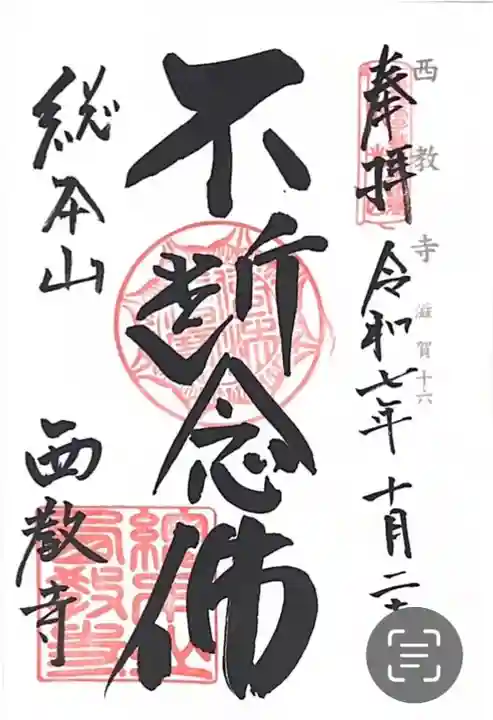 西教寺 滋賀十六
奉拝 令和七年十月二十
不断念佛
総本山 西教寺